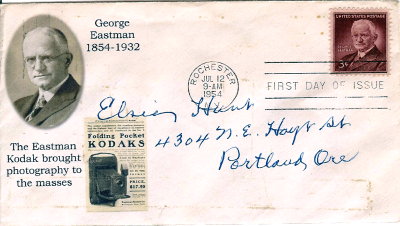 George
Eastman
1854-1932
The Eastman
Kodak brought
photography to
the masses
Folding Pocket
KODAKS
PRICE,
$17.50
ROCHESTER
JUL 12
9-AM
1954
UNITED STATES POSTAGE
3¢
FIRST DAY OF ISSUE
Hunt
4304 N.E. Hoyt St
Portland, Ore